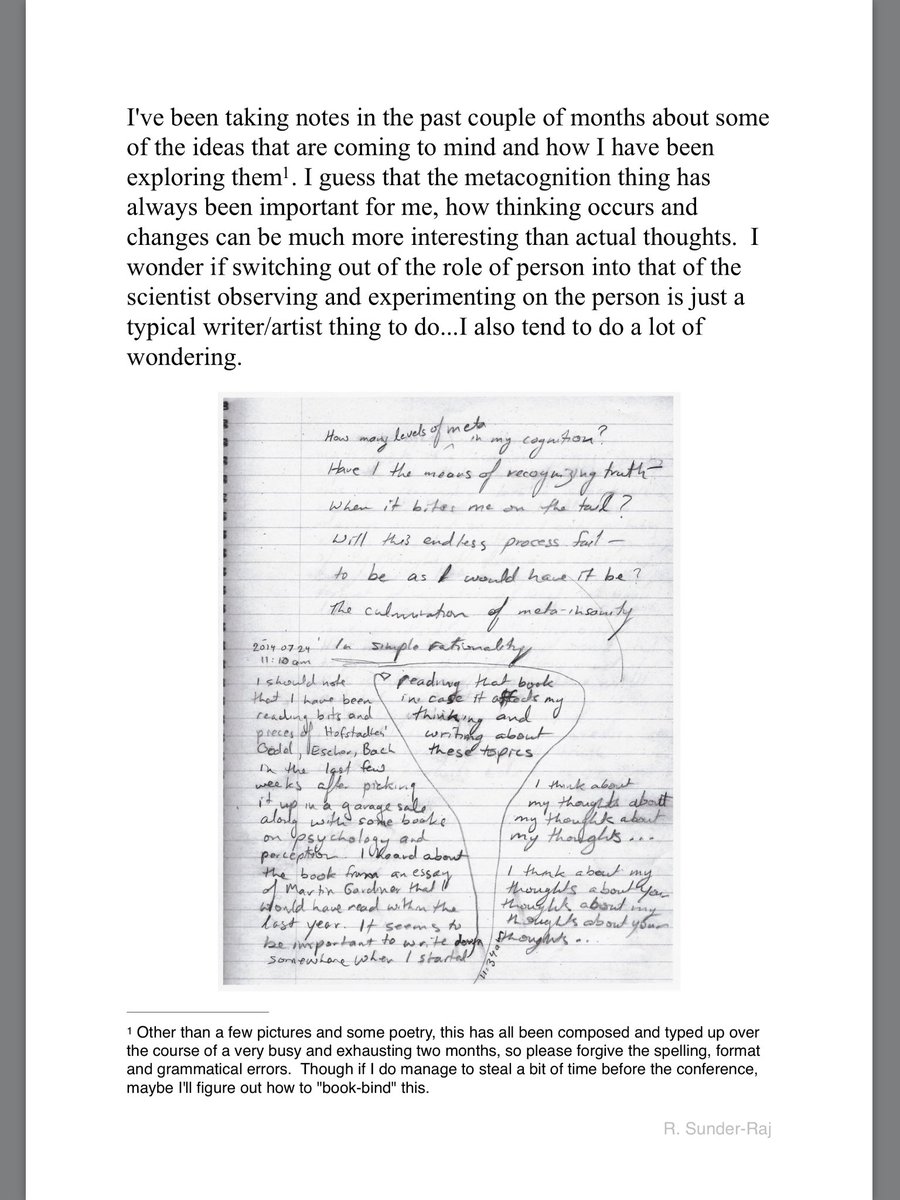 I've been taking notes in the past couple of months about some
of the ideas that are coming to mind and how I have been
exploring them¹. I guess that the metacognition thing has
always been important for me, how thinking occurs and
changes can be much more interesting than actual thoughts.  I
wonder if switching out of the role of person into that of the
scientist observing and experimenting on the person is just a
typical writer/artist thing to do...I also tend to do a lot of
wondering.
How many levels of meta in my cognition?
Have I the means of recognizing truth –
When it bites me on the tail?
Will this endless process fail –
to be as I would have it be?
The culmination of meta-insanity
In simple rationality
2014 07 24
11:10 am
I should note
that I have been
reading bits and
pieces of Hofstadter'
Godel, Escher, Bach
in the last few
weeks after picking
it up in a garage sale
along with some books
on psychology and
perception. I heard about
the book from an essay
of Martin Gardner that I
would have read within the
last year. It seems to
be important to write down
somewhere when I started
reading that book
in case it affects my
thinking and
writing about
these topics
I think about
my thoughts about
my thoughts about
my thoughts...
I think about my
thoughts about your
thoughts about my
thoughts about your
thoughts...
¹ Other than a few pictures and some poetry, this has all been composed and typed up over
the course of a very busy and exhausting two months, so please forgive the spelling, format
and grammatical errors.  Though if I do manage to steal a bit of time before the conference,
maybe I'll figure out how to "book-bind" this.
R. Sunder-Raj